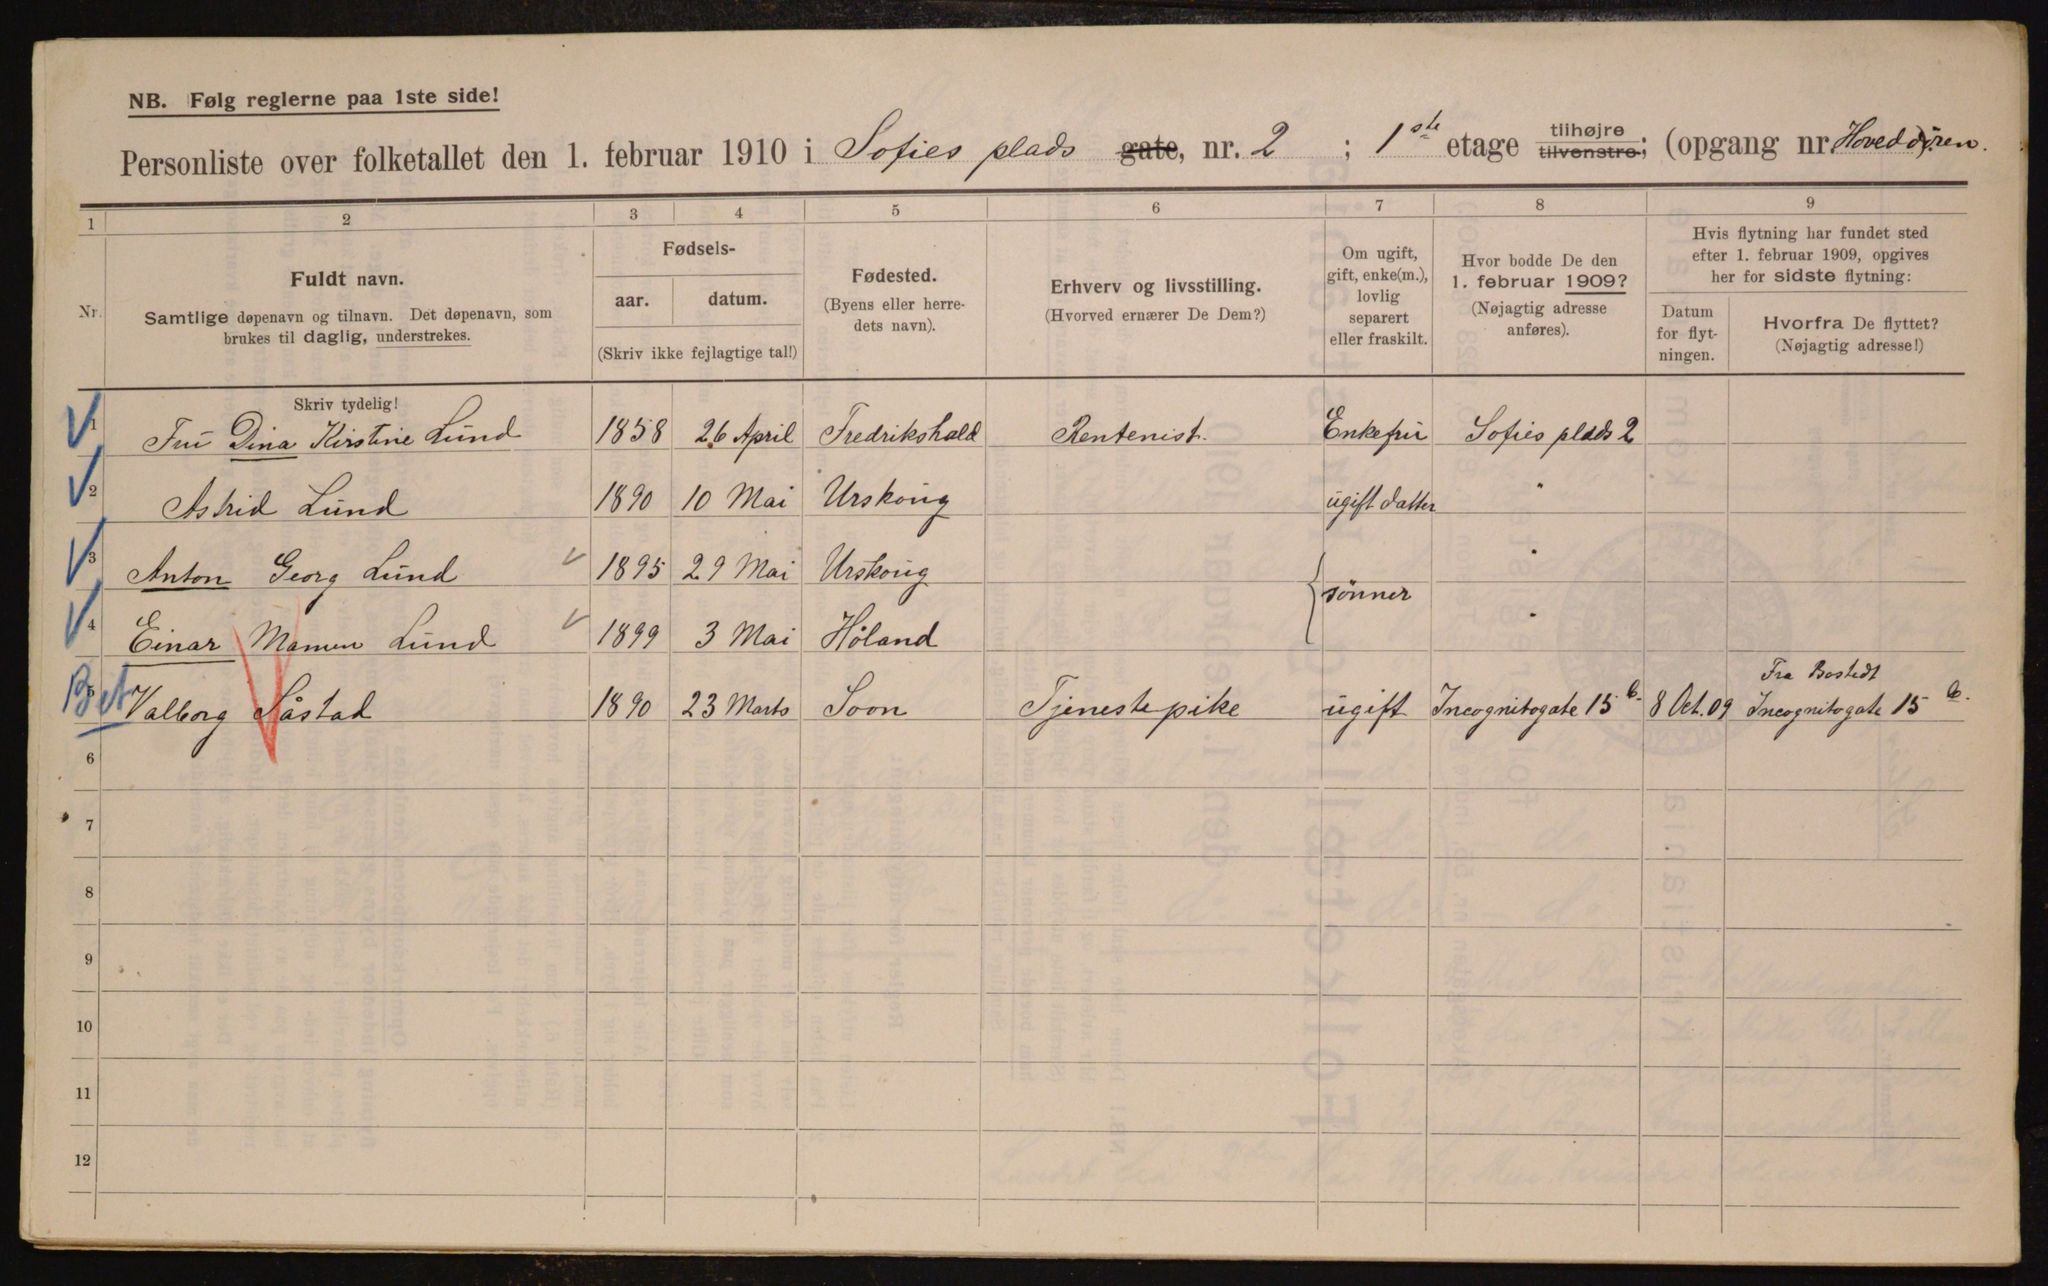 NB. Følg reglerne paa 1ste side!
Personliste over folketallet den 1. februar 1910 i Sofies plads gate, nr. 2 ; 1ste etage tilhøjre tilvenstre; (opgang nr. Hoveddøren.
1 2 3 4 5 6 7 8 9
Nr.
Fuldt navn.
Samtlige døpenavn og tilnavn. Det døpenavn, som
brukes til daglig, understrekes.
Fødsels-
aar. datum.
(Skriv ikke fejlagtige tal!)
Fødested.
(Byens eller herre-
dets navn).
Erhverv og livsstilling.
(Hvorved ernærer De Dem?)
Om ugift,
gift, enke(m.),
lovlig
separert
eller fraskilt.
Hvor bodde De den
1. februar 1909?
(Nøjagtig adresse
anføres).
Hvis flytning har fundet sted
efter 1. februar 1909, opgives
her for sidste flytning:
Datum
for flyt-
ningen.
Hvorfra De flyttet?
(Nøjagtig adresse!)
Skriv tydelig!
1 Fru Dina Kirstine Lund 1858 26 April Fredrikshald Rentenist. Enkefru Sofies plads 2
2 Astrid Lund 1890 10 Mai Urskoug ugift datter "
3 Anton Georg Lund 1895 29 Mai Urskoug "
sønner
4 Einar Mamen Lund 1899 3 Mai Høland "
Fra Bostedt
Bet 5 Valborg Såstad 1890 23 Marts Soon Tjenestepike ugift Incognitogate 15 b. 8 Oct. 09 Incognitogate 15 b.
6
7
8
9
10
11
12